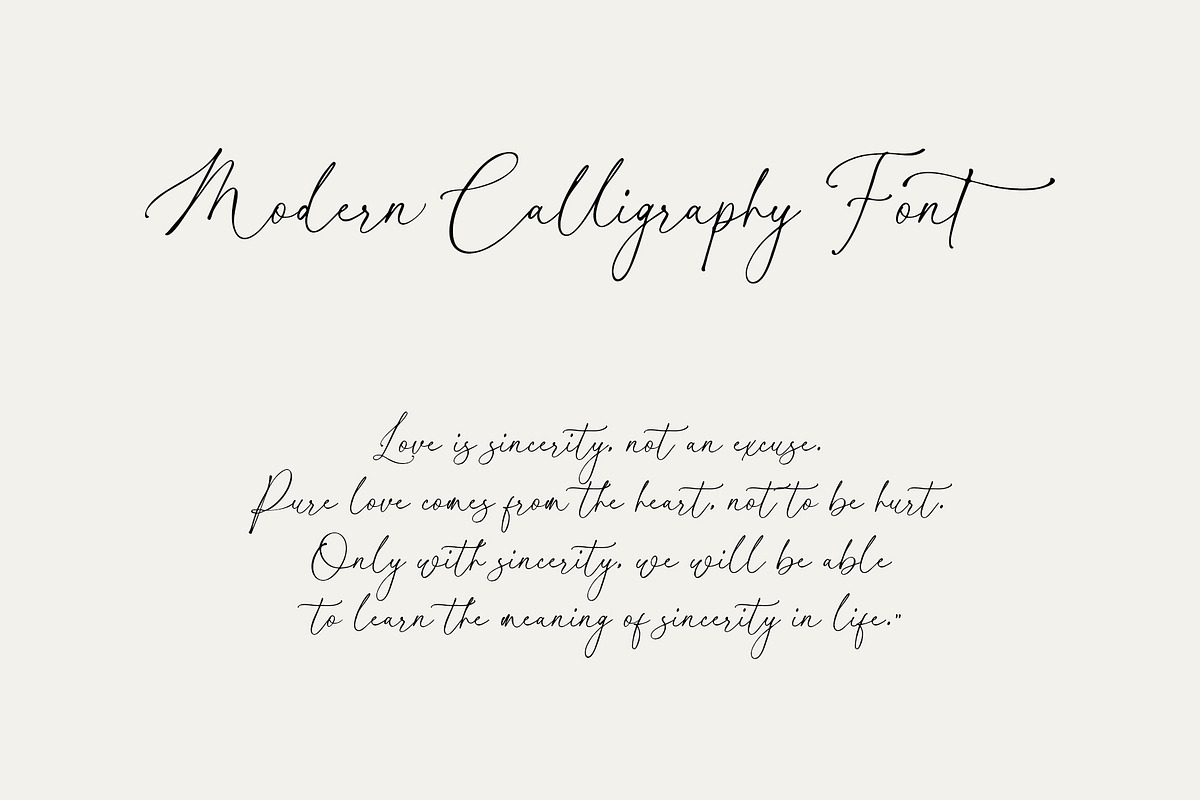 Modern Calligraphy Font
Love is sincerity, not an excuse.
Pure love comes from the heart, not to be hurt.
Only with sincerity, we will be able
to learn the meaning of sincerity in life."